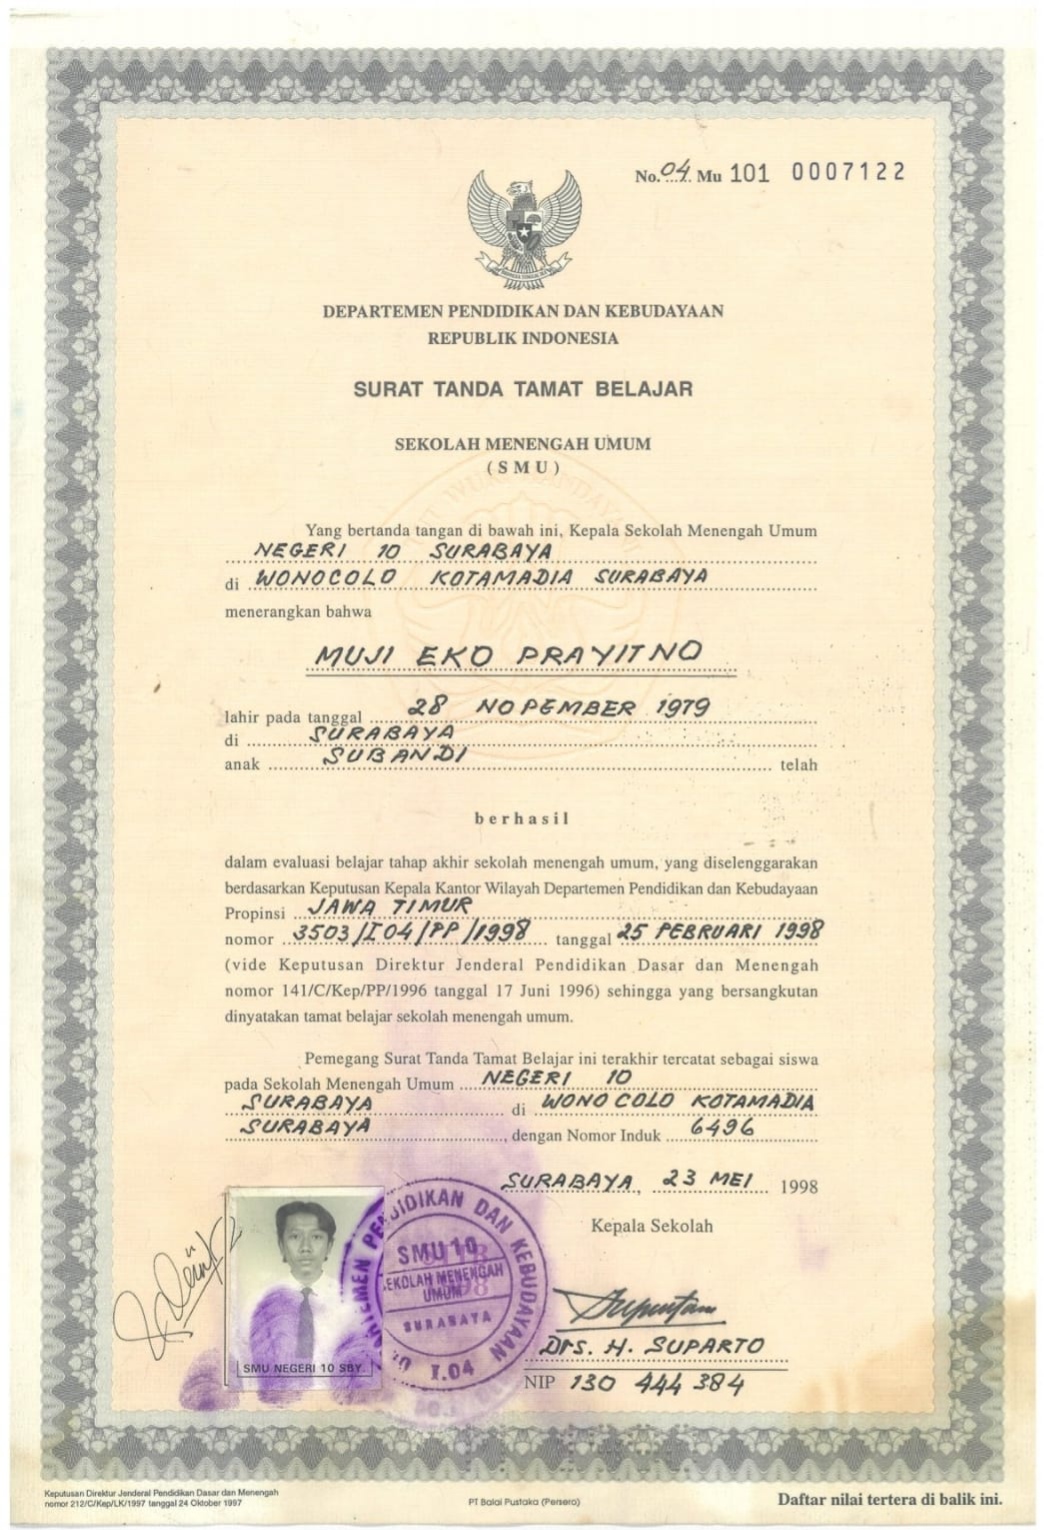 No. 04 Mu 101 0007122
DEPARTEMEN PENDIDIKAN DAN KEBUDAYAAN
REPUBLIK INDONESIA
SURAT TANDA TAMAT BELAJAR
SEKOLAH MENENGAH UMUM
( S M U )
Yang bertanda tangan di bawah ini, Kepala Sekolah Menengah Umum
NEGERI 10 SURABAYA
di WONOCOLO KOTAMADIA SURABAYA
menerangkan bahwa
MUJI EKO PRAYITNO
lahir pada tanggal 28 NOPEMBER 1979
di SURABAYA
anak SUBANDI telah
berhasil
dalam evaluasi belajar tahap akhir sekolah menengah umum, yang diselenggarakan
berdasarkan Keputusan Kepala Kantor Wilayah Departemen Pendidikan dan Kebudayaan
Propinsi JAWA TIMUR
nomor 3503/I04/PP/1998 tanggal 25 PEBRUARI 1998
(vide Keputusan Direktur Jenderal Pendidikan Dasar dan Menengah
nomor 141/C/Kep/PP/1996 tanggal 17 Juni 1996) sehingga yang bersangkutan
dinyatakan tamat belajar sekolah menengah umum.
Pemegang Surat Tanda Tamat Belajar ini terakhir tercatat sebagai siswa
pada Sekolah Menengah Umum NEGERI 10
SURABAYA di WONOCOLO KOTAMADIA
SURABAYA, dengan Nomor Induk 6496
SURABAYA, 23 MEI 1998
Kepala Sekolah
SMU 10
SEKOLAH MENENGAH
UMUM
SURABAYA
I.04
DIDIKAN DAN KEBUDAYAAN
SMU NEGERI 10 SBY.
Drs. H. SUPARTO
NIP 130 444 384
Keputusan Direktur Jenderal Pendidikan Dasar dan Menengah
nomor 212/C/Kep/LK/1997 tanggal 24 Oktober 1997
PT Balai Pustaka (Persero)
Daftar nilai tertera di balik ini.